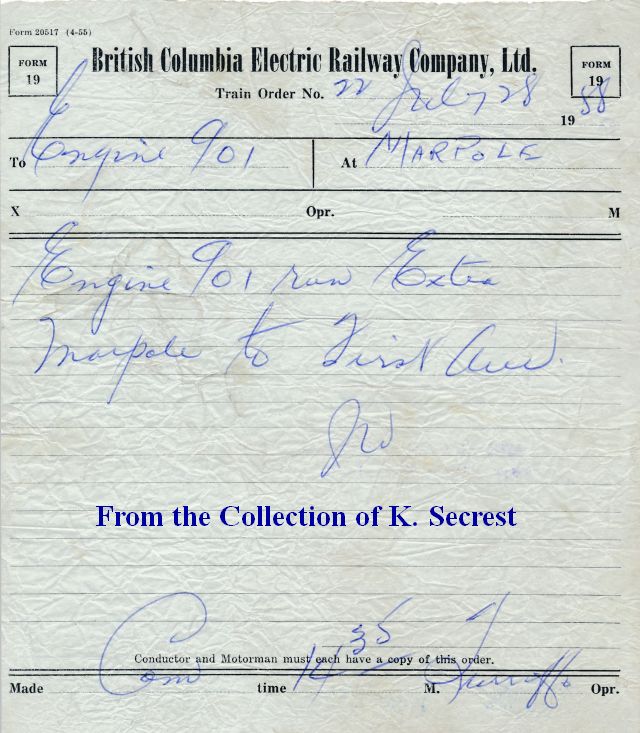 Form 20517 (4-55)
FORM 19
British Columbia Electric Railway Company, Ltd.
FORM 19
Train Order No. 22 July 28 1958
To Engine 901 At MARPOLE
X Opr. M
Engine 901 run Extra
Marpole to First Ave.
From the Collection of K. Secrest
Conductor and Motorman must each have a copy of this order.
Made Com time 14 35 M. Opr.